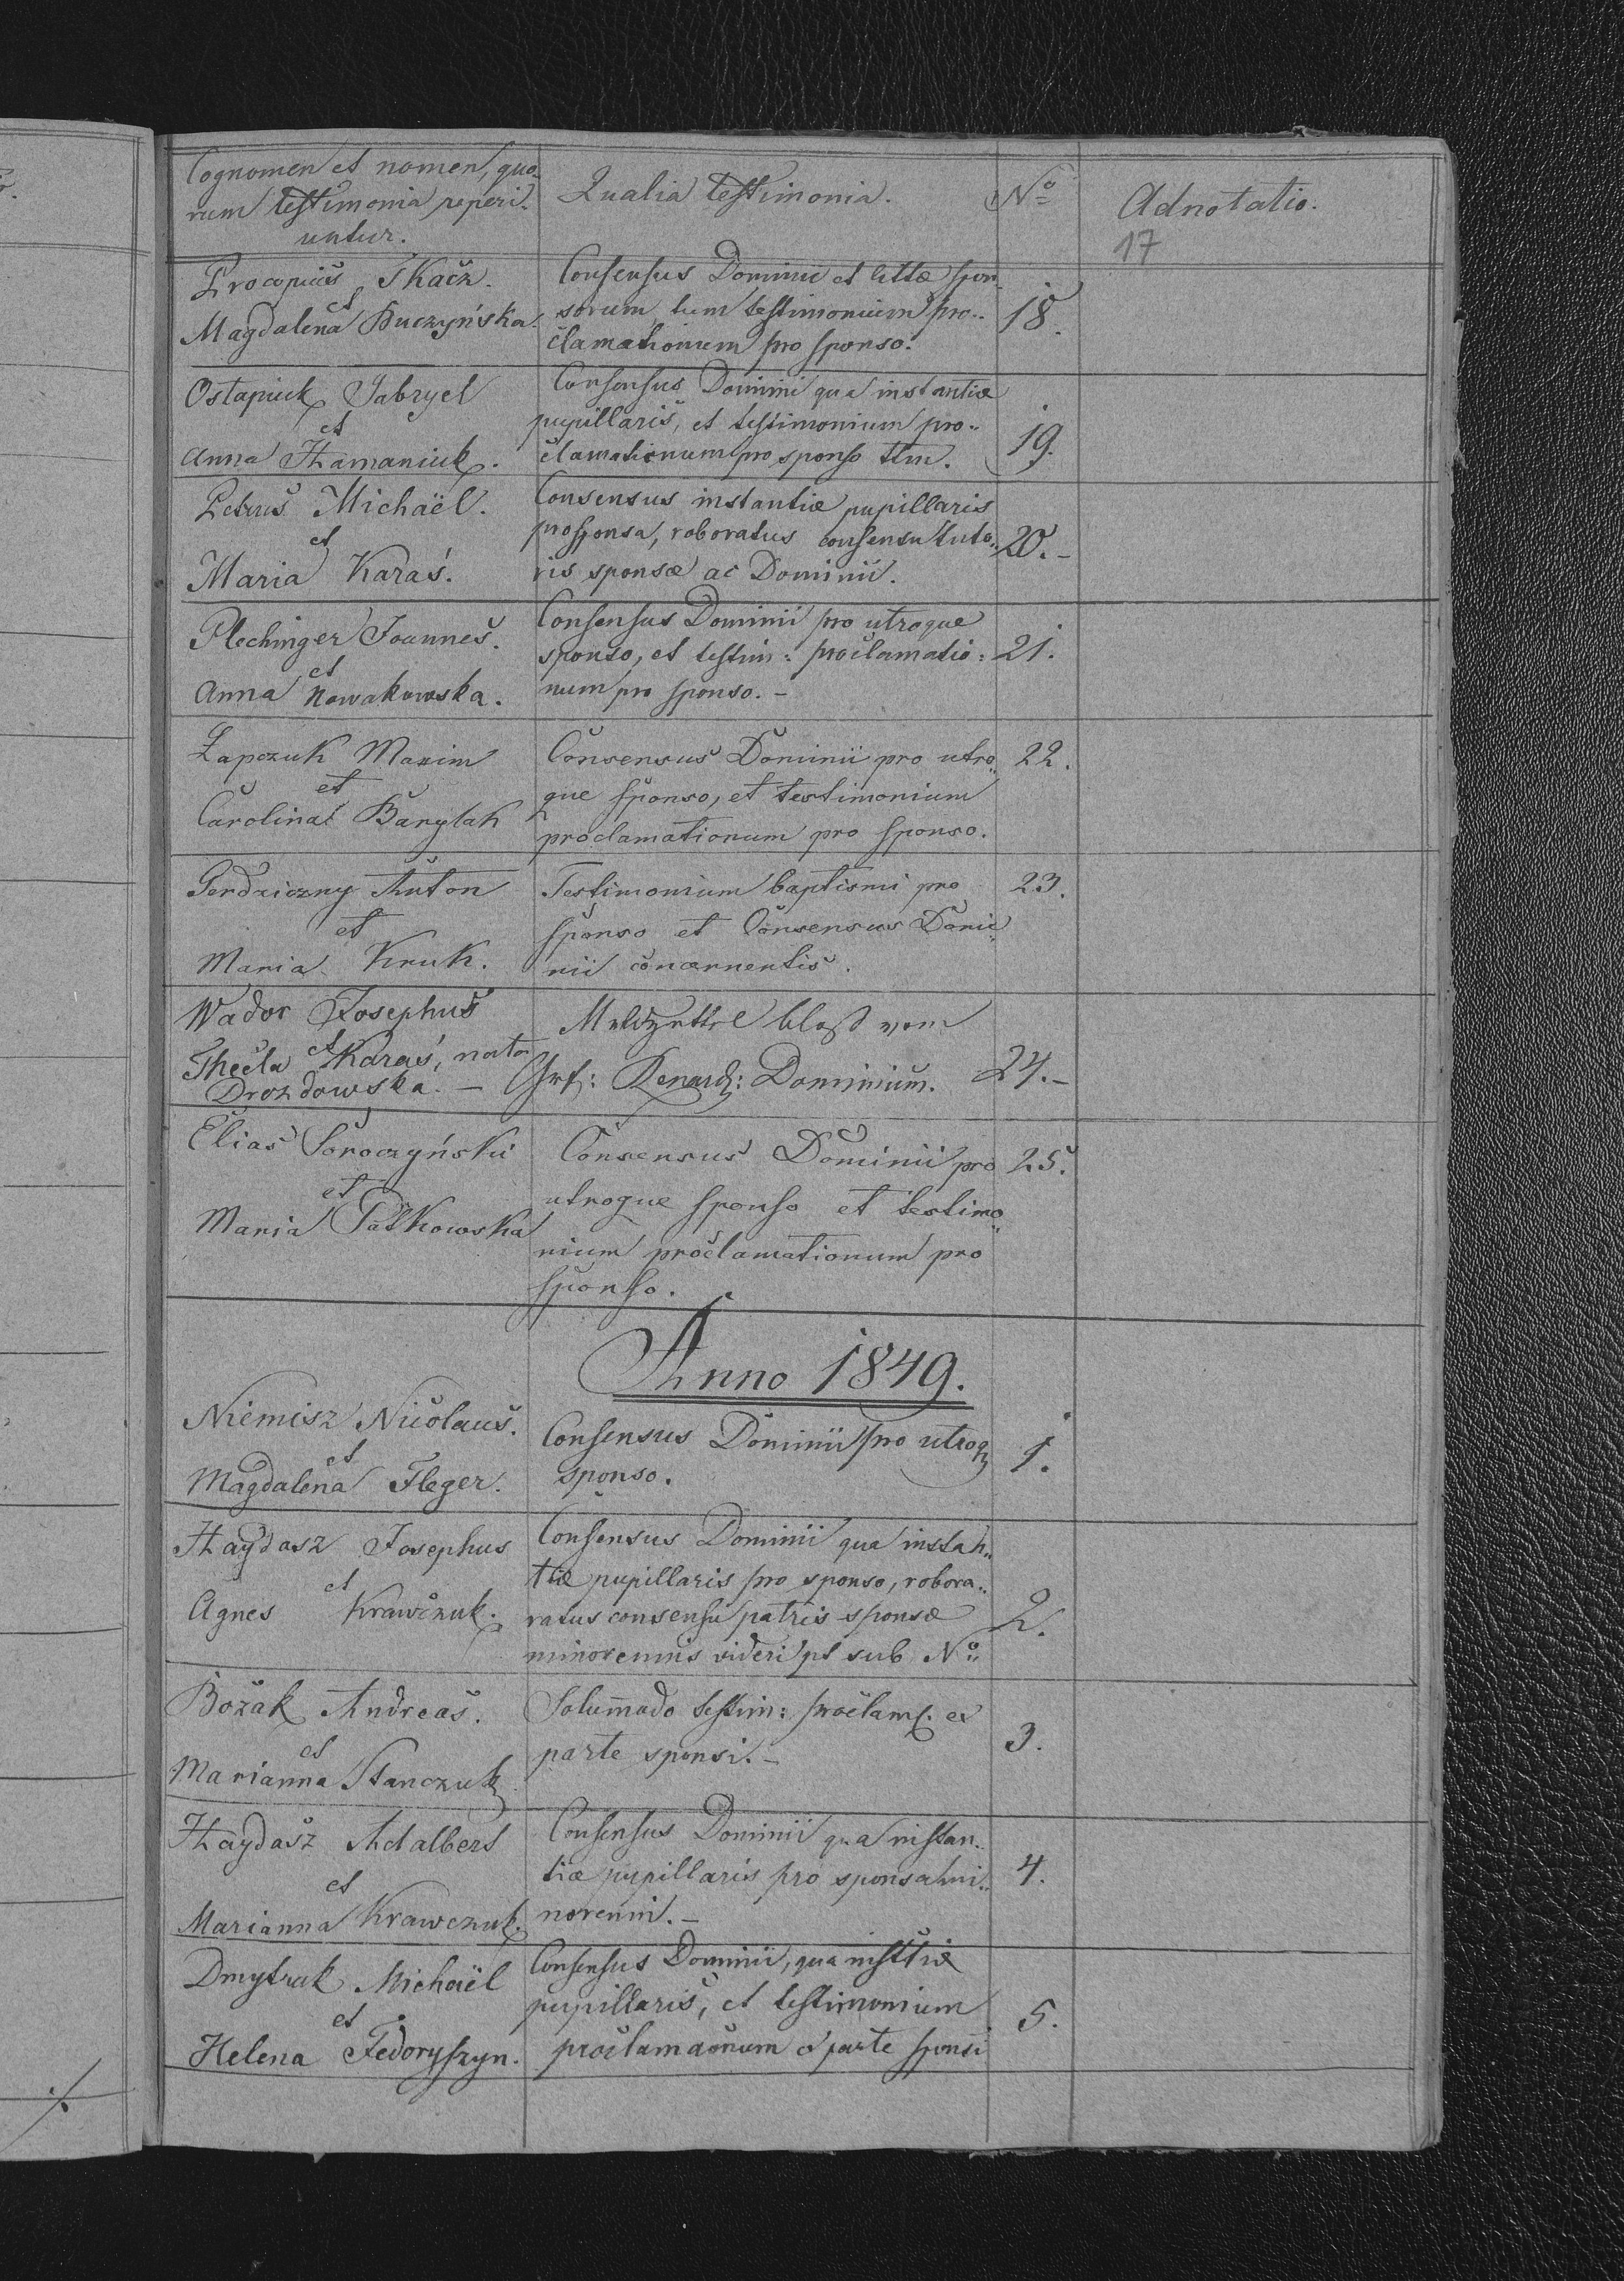 Cognomen et nomen, quo-
rum testimonia reperi-
untur.
Qualia testimonia.
No
Adnotatio.
17
Procopius Tkacz.
et
Magdalena Buczyńska.
Consensus Dominii et spon-
sorum tum testimonium pro-
clamationum pro sponso.
18.
Ostapiuk Gabryel
et
Anna Hamaniuk.
Consensus Dominii qua instantiæ
pupillaris, et testimonium pro-
clamationum pro sponso
19.
Petrus Michaël.
et
Maria Karaś.
Consensus instantiæ pupillaris
pro sponsa, roboratus consensu tuto-
ris sponsæ ac Dominii.
20.-
Plechinger Joannes.
et
Anna Nowakowska.
Consensus Dominii pro utroque
sponso, et testim: proclamatio:
num pro sponso.-
21.
Łapczuk Maxim
et
Carolina Barylak
Consensus Dominii pro utro-
que sponso, et testimonium
proclamationum pro sponso.
22.
Perdziczny Anton
et
Maria Kruk.
Testimonium baptismi pro
sponso et Consensus Domi-
nii concernentis.
23.
Wador Josephus
et
Thecla Karaś, nata
Drozdowska.-
Meldzettel bloß vom
Grf: Renard: Dominium.
24.-
Elias Soroczyński
et
Maria Pałkowska
Consensus Dominii pro
utroque sponso et testimo-
nium proclamationum pro
sponso.
25.
Anno 1849.
Niemisz Nicolaus.
et
Magdalena Fleger.
Consensus Dominii pro utroq
sponso.
1.
Haydasz Josephus
et
Agnes Krawczuk.
Consensus Dominii qua instan-
tiæ pupillaris pro sponso, robora-
ratus consensu patris sponsæ
minorennis videri pt sub No
2.
Bożak Andreas.
et
Marianna Stanczuk
Solummodo testim: proclam. ex
parte sponsi.-
3.
Haydasz Adalbert
et
Marianna Krawczuk.
Consensus Dominii qua instan-
tiæ pupillaris pro sponsa mi-
norenni.-
4.
Dmytruk Michaël
et
Helena Fedoryszyn.
Consensus Dominii, qua insttiæ
pupillaris, et testimonium
proclamaonum ex parte sponsi
5.
./.